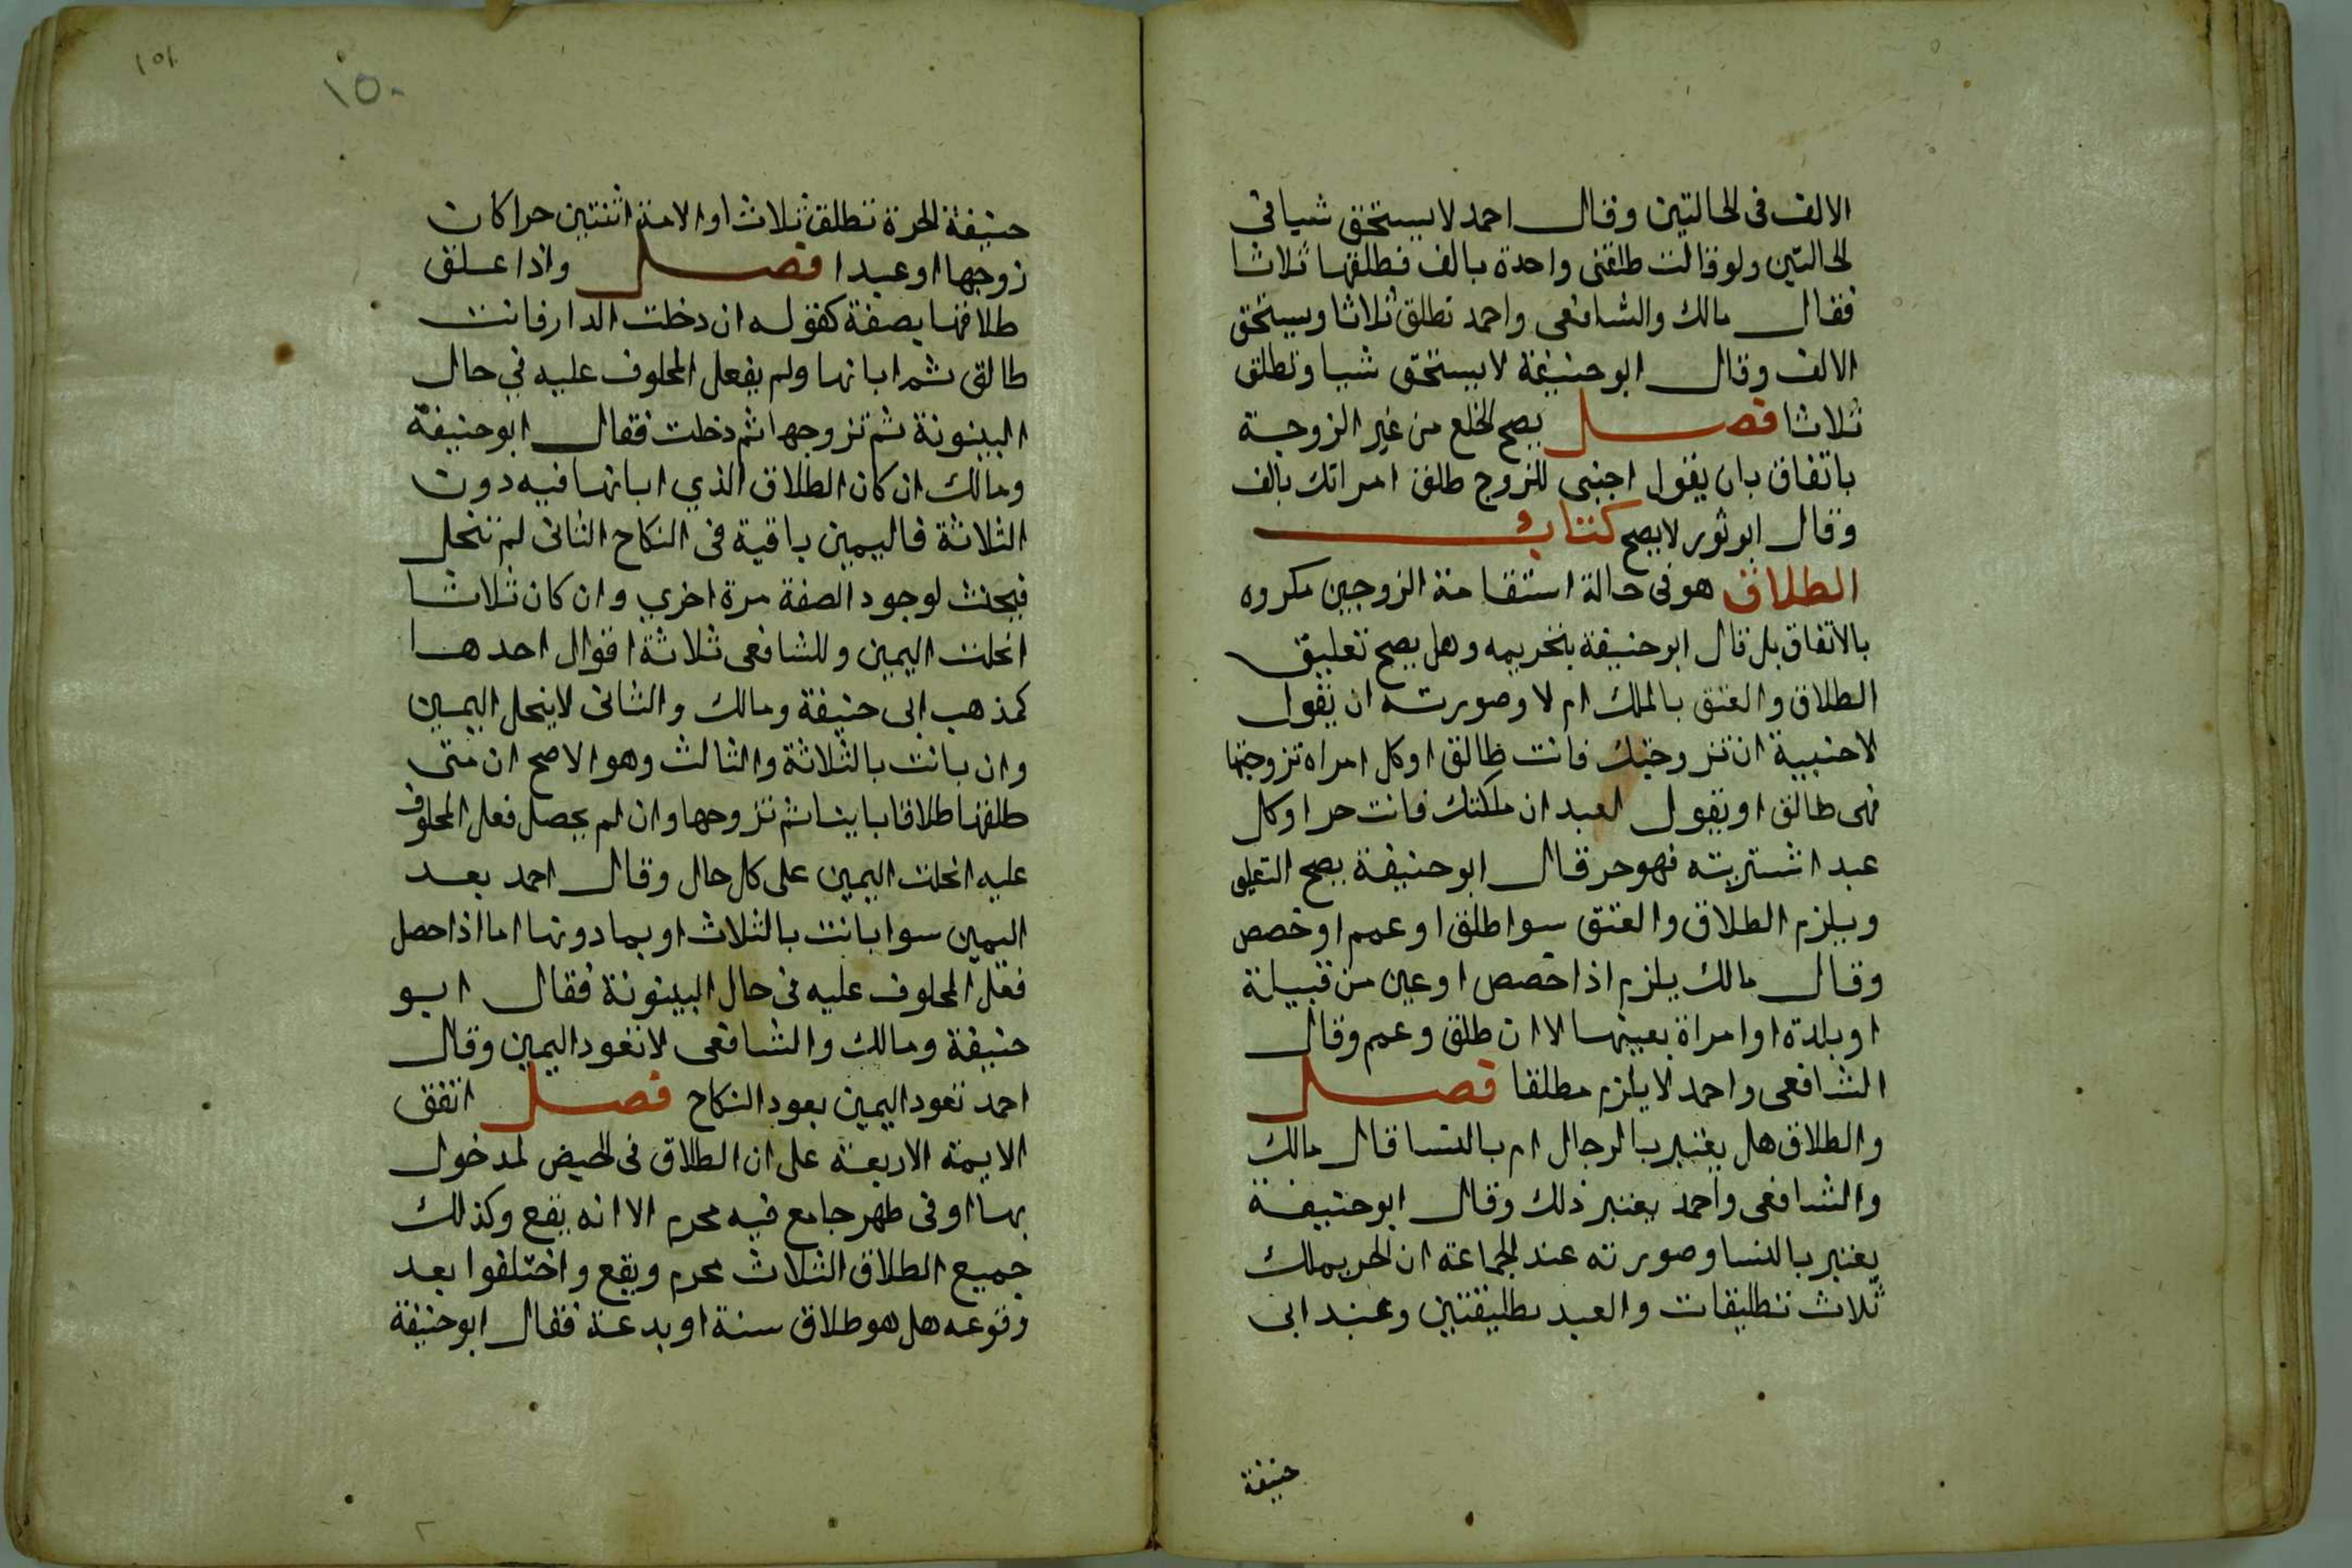 الالف فى الحالتين وقال احمد لا يستحق شيا فى
الحالتين ولو قالت طلقنى واحدة بالف فطلقها ثلاثا
فقال مالك والشافعى واحمد تطلق ثلاثا ويستحق
الالف وقال ابو حنيفة لا يستحق شيا وتطلق
ثلاثا فصل يصح الخلع من غير الزوجة
باتفاق بان يقول اجنبى للزوج طلق امراتك بالف
وقال ابو ثور لا يصح كتاب
الطلاق هو فى حالة استقامة الزوجين مكروه
بالاتفاق بل قال ابو حنيفة بتحريمه وهل يصح تعليق
الطلاق والعتق بالملك ام لا وصورته ان يقول
لاجنبية ان تزوجتك فانت طالق او كل امراة تزوجتها
فهى طالق او يقول لعبد ان ملكتك فانت حر او كل
عبد اشتريته فهو حر قال ابو حنيفة يصح التعليق
ويلزم الطلاق والعتق سوا اطلق او عمم او خصص
وقال مالك يلزم اذا خصص او عين من قبيلة
او بلدة او امراة بعينها لا ان طلق وعمم وقال
الشافعى واحمد لا يلزم مطلقا فصل
والطلاق هل يعتبر بالرجال ام بالنسا قال مالك
والشافعى واحمد يعتبر ذلك وقال ابو حنيفة
يعتبر بالنسا وصورته عند الجماعة ان الحر يملك
ثلاث تطليقات والعبد تطليقتين وعند ابى
حنيفة
١٥٠
١٥١
حنيفة الحرة تطلق ثلاث او الامة اثنتين حرا كان
زوجها او عبدا فصل واذا علق
طلاقها بصفة كقوله ان دخلت الدار فانت
طالق ثم ابانها ولم يفعل المحلوف عليه في حال
البينونة ثم تزوجها ثم دخلت فقال ابو حنيفة
ومالك ان كان الطلاق الذي ابانها فيه دون
الثلاثة فاليمين باقية فى النكاح الثانى لم تنحل
فيحنث لوجود الصفة مرة اخري وان كان ثلاثا
انحلت اليمين وللشافعى ثلاثة اقوال احدها
كمذهب ابى حنيفة ومالك والثانى لا ينحل اليمين
وان بانت بالثلاثة والثالث وهو الاصح ان متى
طلقها طلاقا باينا ثم تزوجها وان لم يحصل فعل المحلوف
عليه انحلت اليمين على كل حال وقال احمد بعد
اليمين سوا بانت بالثلاث او بما دونها اما اذا حصل
فعل المحلوف عليه فى حال البينونة فقال ابو
حنيفة ومالك والشافعى لا تعود اليمين وقال
احمد تعود اليمين بعود النكاح فصل اتفق
الايمة الاربعة على ان الطلاق فى الحيض لمدخول
بها او فى طهر جامع فيه محرم الا انه يقع وكذلك
جميع الطلاق الثلاث محرم ويقع واختلفوا بعد
وقوعه هل هو طلاق سنة او بدعة فقال ابو حنيفة